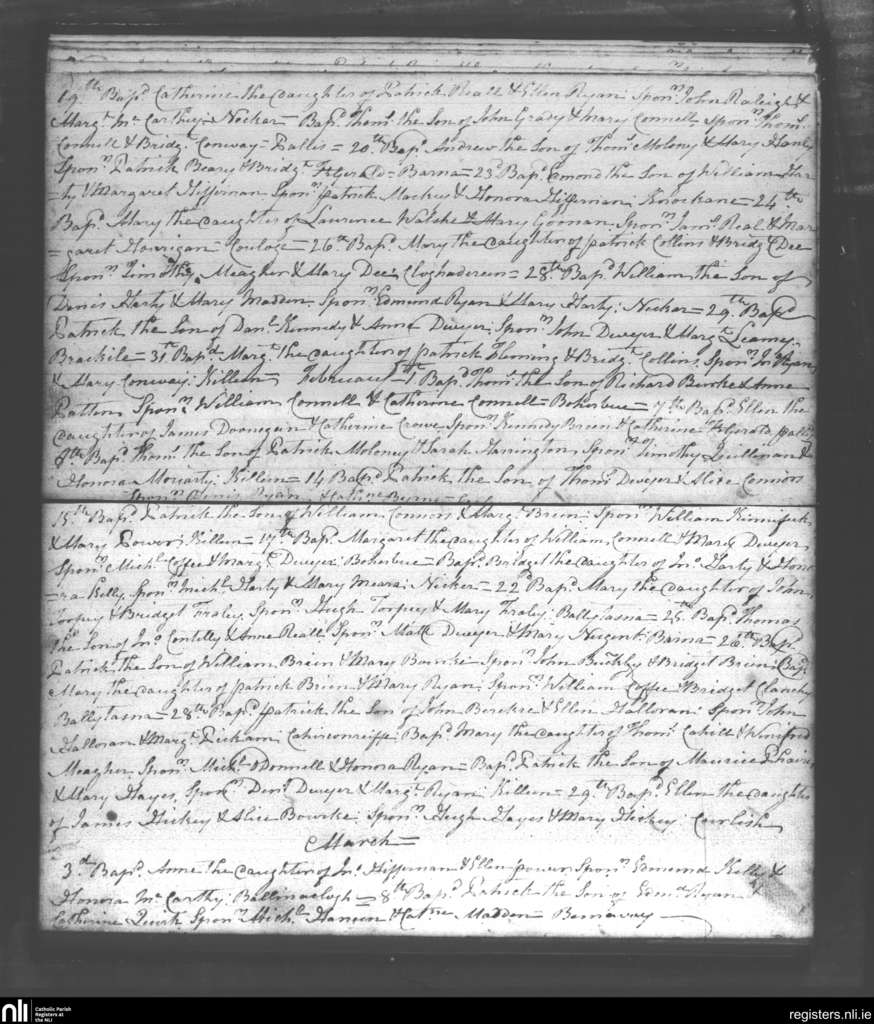 19th Bapd. Catherine the daughter of Patrick Reall & Ellen Ryan Sponrs John Raleigh &
Margt. Mc Carthy: Nicker = Bapd. Thoms. the Son of John Grady & Mary Connell Sponrs Thoms.
Connell & Bridgt. Conway = Pallis = 20th. Bapd. Andrew the Son of Thoms. Molony & Mary
Sponrs Patrick Beary & Bridgt. = Barna = 23d Bapd. Edmond the Son of William
& Margaret Heffernan Sponrs patrick Mackey & Honora Heffernan Knockane = 24th
Bapd. Mary the daughter of Laurence Walshe & Mary Goonan Sponrs Jams. Real & Mar
= garet Horrigan = = 26th Bapd. Mary the daughter of patrick Collins & Bridgt. Dee
Sponrs Timothy Meagher & Mary Dee: = 28th. Bapd. William the Son of
Denis Harty & Mary Madden Sponrs Edmond Ryan & Mary Harty: Nicker = 29th. Bapd.
Patrick the Son of Danl. Kennedy & Anne Dwyer Sponrs John Dwyer & Margt. Leamy:
Brackile = 31st Bapd. Margt. the daughter of patrick Fleming & Bridgt. Collins Sponrs Jno. Ryan
& Mary Conway: Killeen = February = 1 Bapd. Thoms. the Son of Richard Burke & Anne
Patten Sponrs William Connell & Catherine Connell = = 7th Bapd. Ellen the
daughter of James & Catherine Crowe Sponrs Kennedy Breen & Catherine
8th. Bapd. Thoms. the Son of Patrick Moloney & Sarah Harrington Sponrs Timothy &
Honora Moriarty: Killeen = 14 Bapd. Patrick the Son of Thoms. Dwyer & Alice Connors
Sponrs Denis Ryan & Cathrine Byrne =
15th Bapd. Patrick the Son of William Connors & Margt. Breen: Sponrs William
& Mary Power: Killeen = 17th. Bapd. Margaret the daughter of William Connell & Mary Dwyer
Sponrs Michl. Coffee & Margt. Dwyer: = Bapd. Bridget the daughter of Jno. Harty & Hono
= ra Kelly Sponrs Michl. Harty & Mary Meara: Nicker = 22d Bapd. Mary the daughter of John
Torpey & Bridget Fraley Sponrs Hugh Torpey & Mary Fraley: Ballytasna = 25 Bapd. Thomas
the Son of Jno. & Anne Reall Sponrs Matt Dwyer & Mary Nugent: Barna = 26th Bapd.
Patrick the Son of William Breen & Mary Bourke Sponrs John & Bridget Breen: Bapd.
Mary the daughter of patrick Breen & Mary Ryan: Sponrs William Coffee & Bridget Clanchy
Ballytasna = 28th Bapd. patrick the Son of John & Ellen Halloran: Sponrs John
Halloran & Margt. : Bapd. Mary the daughter of Thoms. Cahill & Winifred
Meagher Sponrs Michl. ODonnell & Honora Ryan = Bapd. Patrick the Son of Maurice
& Mary Hayes, Sponrs Denis Dwyer & Margt. Ryan: Killeen = 29th. Bapd. Ellen the daughter
of James Hickey & Alice Bowrke: Sponrs Hugh Hayes & Mary Hickey: Curlish
March =
3d. Bapd. Anne the daughter of Jno. Heffernan & Ellen power Sponrs Edmond Kelly &
Honora Mc Carthy: Ballinaclogh = 8th Bapd. Patrick the Son of Edmd. Ryan &
Catherine Quirk Sponrs Michl. & Cathne. Madden =
nli
Catholic Parish
Registers at
the NLI
registers.nli.ie